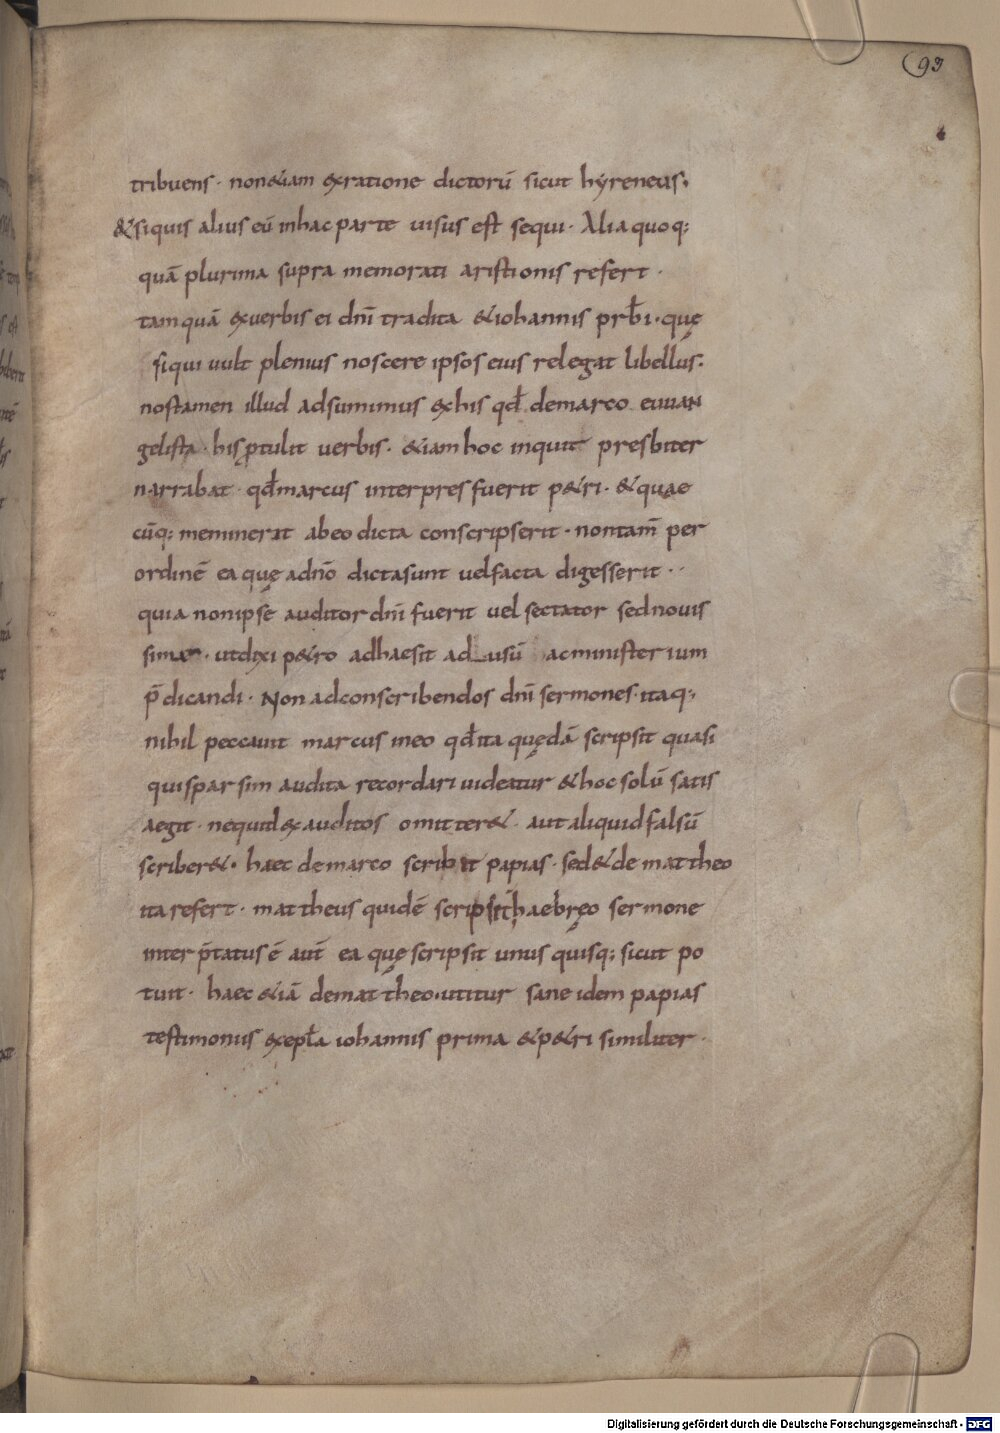 93
tribuens · non&iam exratione dictorū sicut hyreneus.
&siquis alius eū inhac parte uisus est sequi · Alia quoq;
quā plurima supra memorati aristionis refert ·
tamquā exuerbis ei dn̄i tradita &iohannis prb̄i · quę
siqui uult plenius noscere ipsos eius relegat libellus.
nostamen illud adsumimus exhis qd̄ demarco euuan
gelista · his ꝓtulit uerbis · &iam hoc inquit presbiter
narrabat · qd̄marcus interpres fuerit p&ri · &quae
cūq; meminerit abeo dicta conscripserit · nontam̄ per
ordinē ea quę adn̄o dictasunt uelfacta digesserit · ·
quia nonipse auditor dn̄i fuerit uel sectator sednouis
sima · utdixi p&ro adhaesit ad usū acministerium
p̄dicandi · Non adconscribendos dn̄i sermones · itaq;
nihil peccauit marcus ineo qd̄ita quędā scripsit quasi
quisparsim audita recordari uideatur &hoc solū satis
aegit · nequid exauditos omitter& · aut aliquid falsū
scriber& · haec demarco scribit papias · sed&de mattheo
ita refert · mattheus quidē scripsit haebręo sermone
interp̄tatus ē aut̄ ea quę scripsit unus quisq; sicut po
tuit · haec &iā demattheo · utitur sane idem papias
testimoniis exepl̄a iohannis prima &p&ri similiter ·
Digitalisierung gefördert durch die Deutsche Forschungsgemeinschaft - DFG